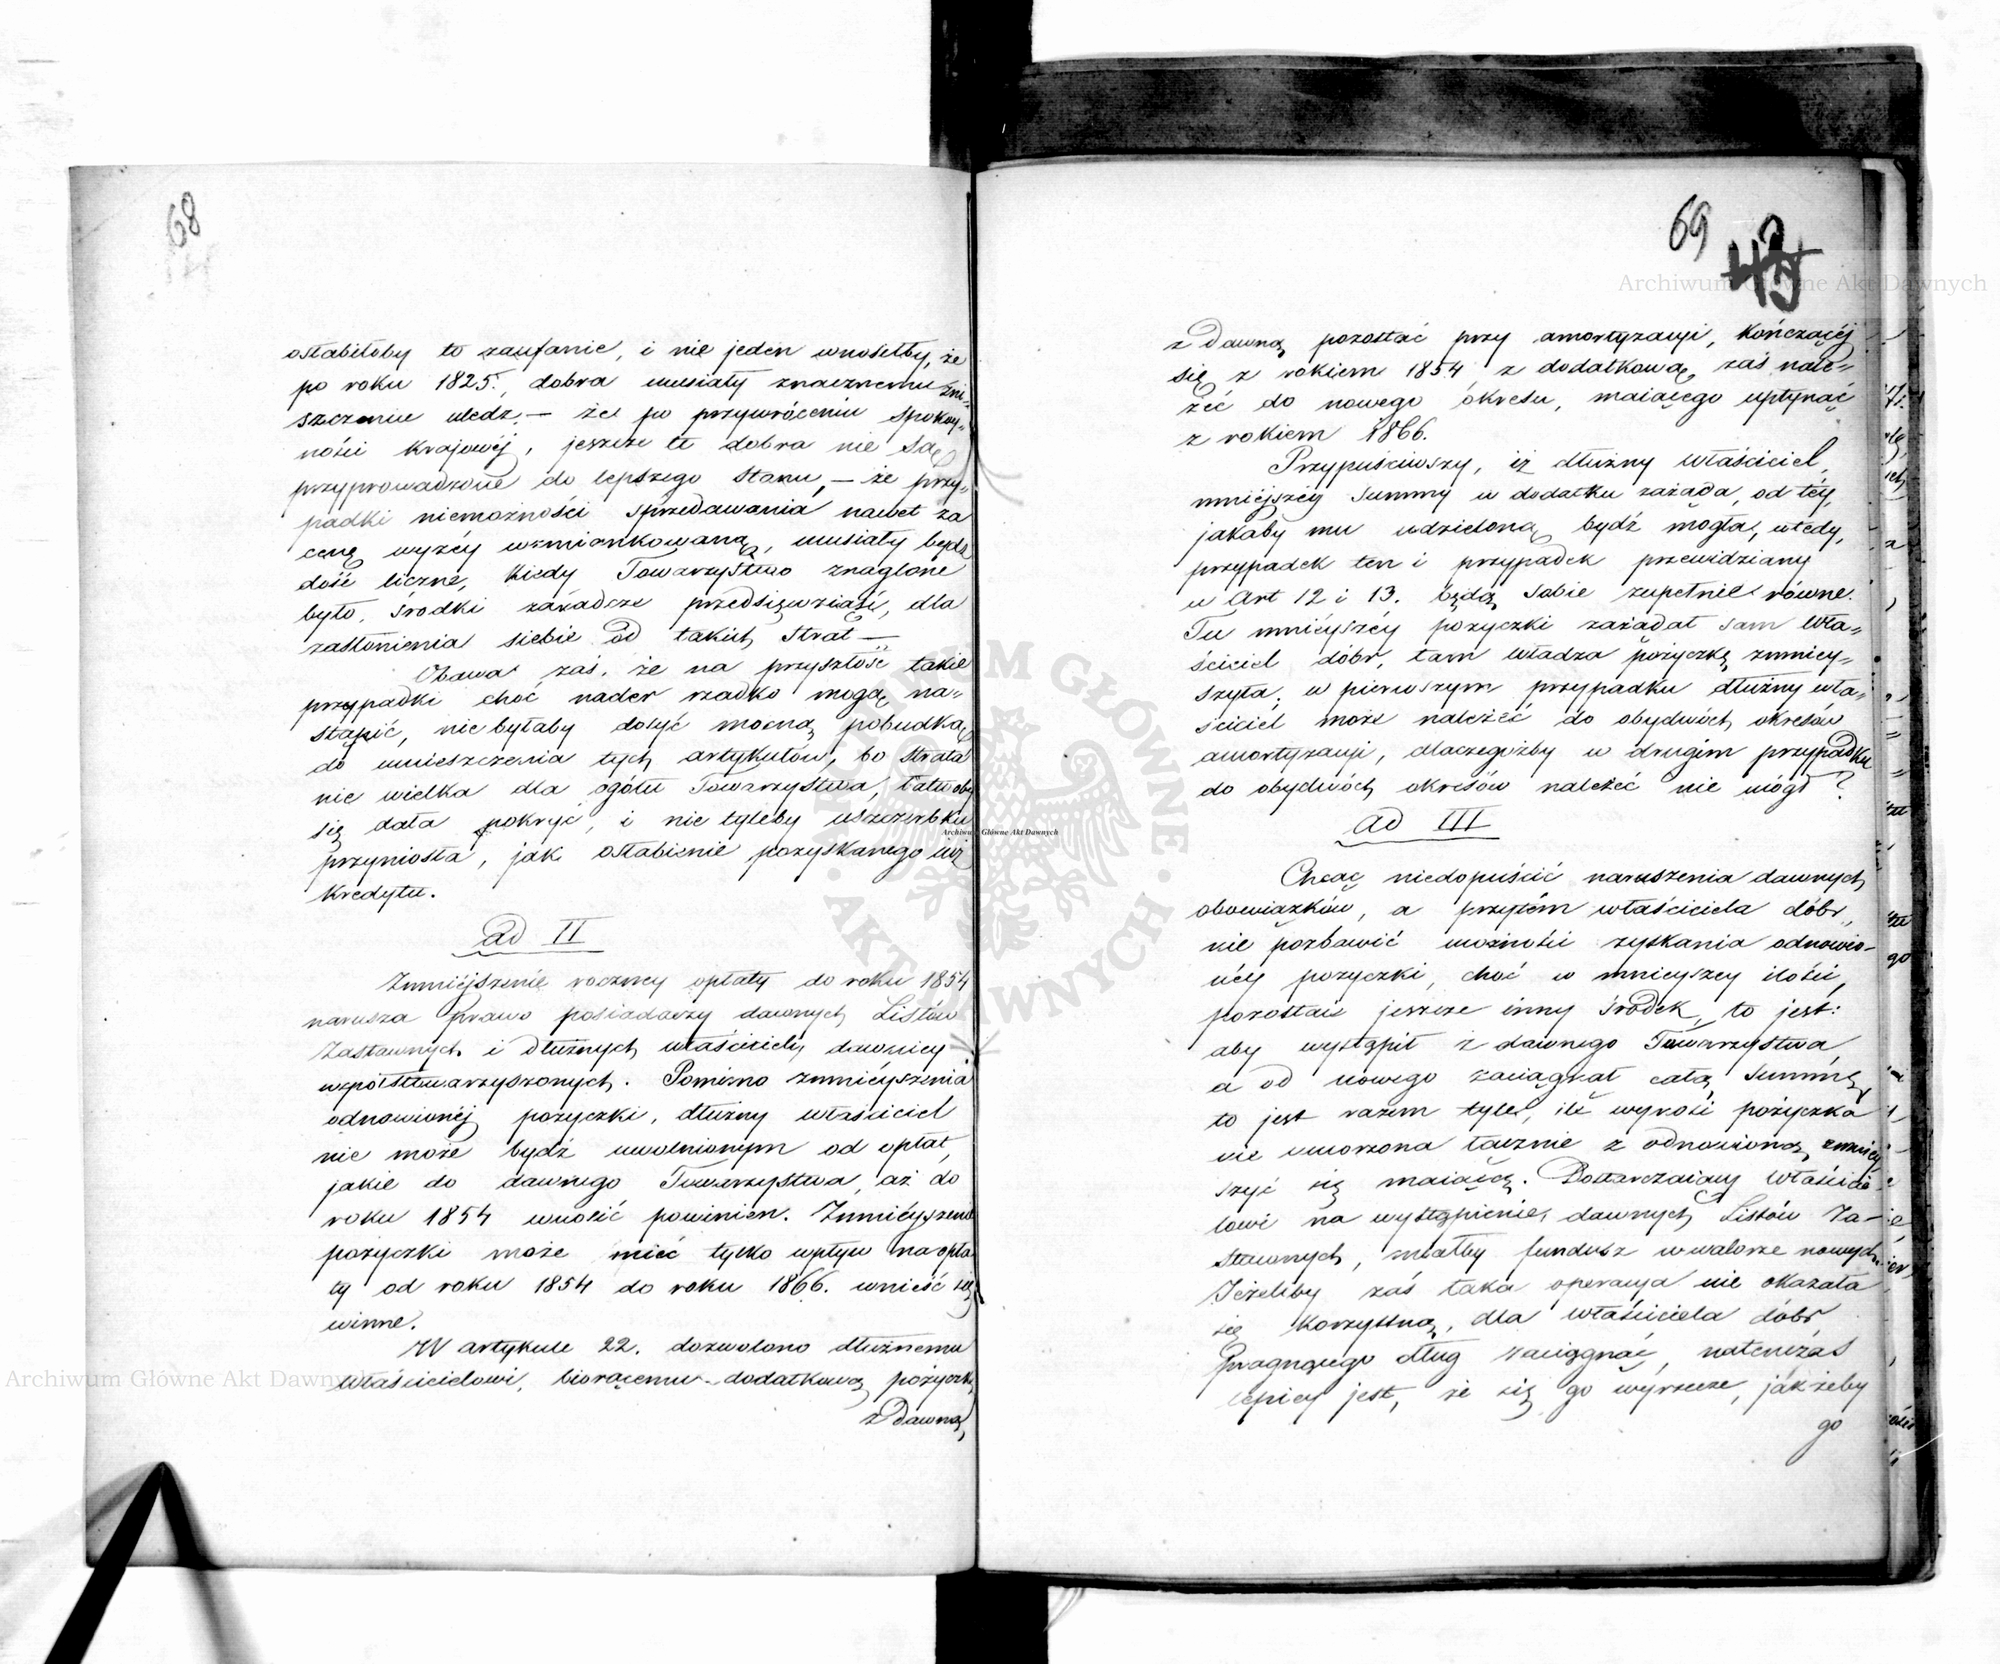 68
osłabiłoby to zaufanie, i nie jeden wnosiłby, że
po roku 1825., dobra musiały znacznemu zni-
szczeniu uledz, — że po przywróceniu spokoy-
ności krajowéj, jeszcze te dobra nie są
przyprowadzone do lepszego stanu, — że przy-
padki niemożności sprzedawania nawet za
cenę wyżéy wzmiankowaną, musiały będz
dość liczne, kiedy Towarzystwo znaglone
było, środki zaradcze przedsięwziąść, dla
zasłonienia siebie od takich strat —
Obawa zaś, że na przyszłość takie
przypadki choć nader rzadko mogą na-
stąpić, nie byłaby dosyć mocną pobudką
do umieszczenia tych artykułów, bo strata
nie wielka dla ogółu Towarzystwa, łatwoby
się dała pokryć, i nie tyleby uszczerbku
przyniosła, jak osłabienie pozyskanego iuż
kredytu.
ad II
Zmniéjszenie roczney opłaty do roku 1854
narusza prawo posiadaczy dawnych Listów
Zastawnych i dłużnych właścicieli dawniey
współstowarzyszonych. Pomimo zmniéyszenia
odnowionéj pożyczki, dłużny właściciel
nie może bydź uwolnionym od opłat,
jakie do dawnego Towarzystwa, aż do
roku 1854 wnosić powinien. Zmniéyszenie
pożyczki może mieć tylko wpływ na opła
ty od roku 1854 do roku 1866. wnieść się
winne.
W artykule 22. dozwolono dłużnemu
właścicielowi, biorącemu dodatkową pożyczkę
z dawną,
69
z dawną pozostać przy amortyzacyi, kończącéj
się z rokiem 1854, z dodatkową zaś nale-
żéć do nowego okresu, maiącego upłynąć
z rokiem 1866.
Przypuściwszy, iż dłużny właściciel,
mniéjszéy summy w dodatku zażąda, od téy,
jakaby mu udzieloną bydź mogła, wtedy,
przypadek ten i przypadek przewidziany
w Art 12 i 13. będą sobie zupełnie równe.
Tu mnieyszey pożyczki zażądał sam wła-
ściciel dóbr, tam władza pożyczkę zmniey-
szyła; w pierwszym przypadku dłużny wła-
ściciel może należéć do obydwóch okresów
amortyzacyi, dlaczegożby w drugim przypadku
do obydwóch okresów należéć nie mógł?
ad III
Chcąc niedopuścić naruszenia dawnych
obowiązków, a przytém właściciela dóbr,
nie pozbawić możności zyskania odnowio-
néy pożyczki, choć w mnieyszey ilości,
pozostaie jeszcze inny środek, to jest:
aby wystąpił z dawnego Towarzystwa,
a od nowego zaciągnął całą summę,
to jest razem tyle, ile wynosi pożyczka
nie umorzona łącznie z odnowioną, zmniéy
szyć się maiącą. Dostarczaiący właścicie-
lowi na wystąpienie, dawnych Listów Za-
stawnych, miałby fundusz w walorze nowych.
Jeżeliby zaś taka operacya nie okazała
się korzystną, dla właściciela dóbr
pragnącego dług zaciągnąć, natenczas
lepiey jest, że się go wyrzecze, jak żeby
go
Archiwum Główne Akt Dawnych
Archiwum Główne Akt Dawnych
Archiwum Główne Akt Dawnych